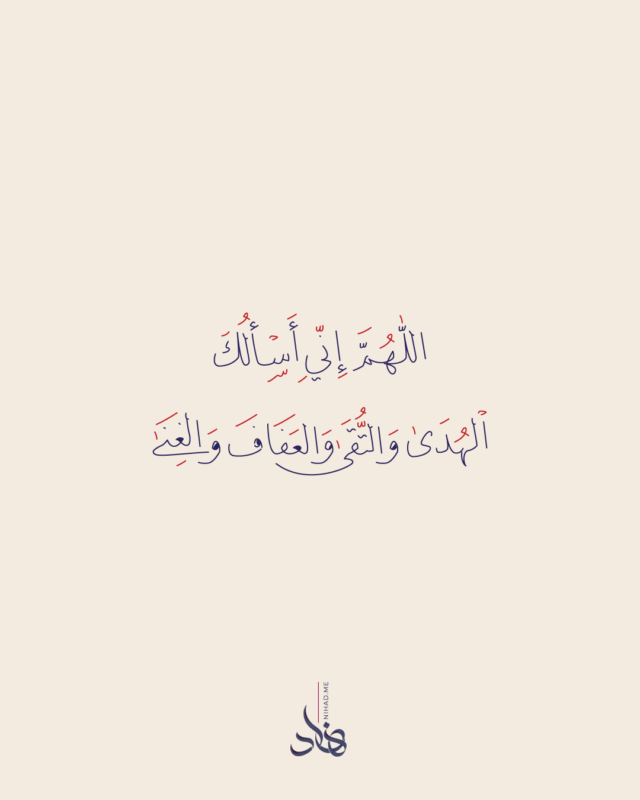 اللّٰهُمَّ إِنِّي أَسْأَلُكَ
ٱلْهُدَىٰ وَالتُّقَىٰ وَالعَفَافَ وَالغِنَىٰ
NIHAD.ME
نهاد